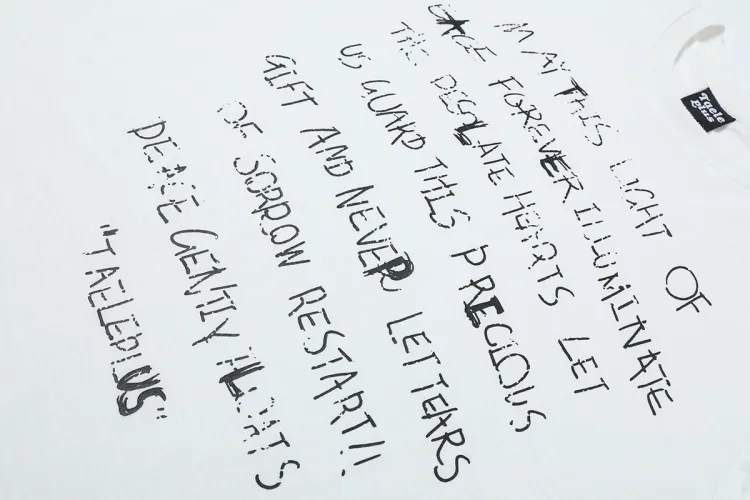 MAY THIS LIGHT OF
FOREVER ILLUMINATE
THE DESOLATE HEARTS LET
US GUARD THIS PRECIOUS
GIFT AND NEVER LET TEARS
OF SORROW RESTART!!
GENTLY
"TAELEPLUS"
Taele
Plus